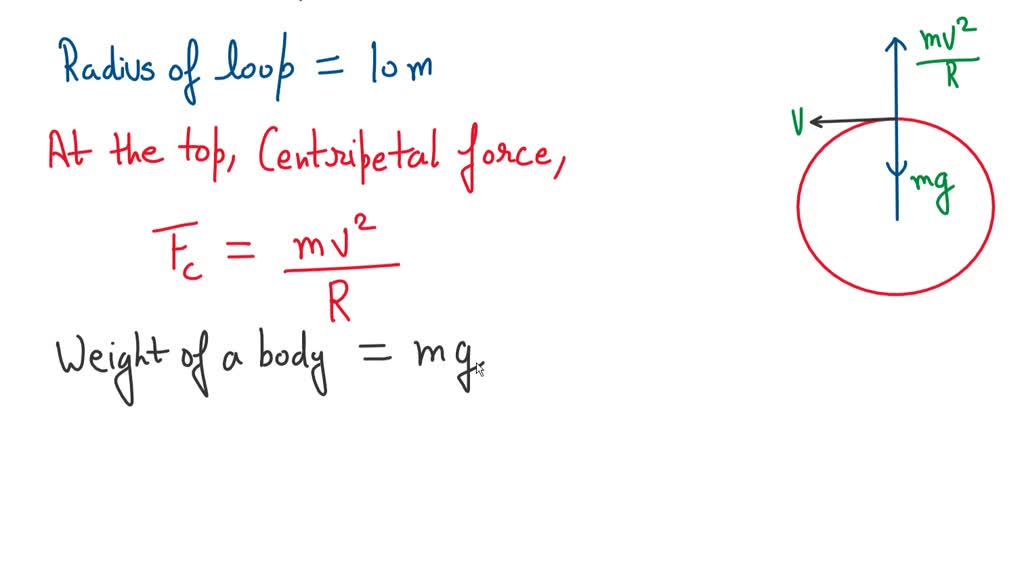 Radius of loop = 10 m
At the top, Centripetal force,
F_c = mv²/R
Weight of a body = mg.
mv²/R
V
mg